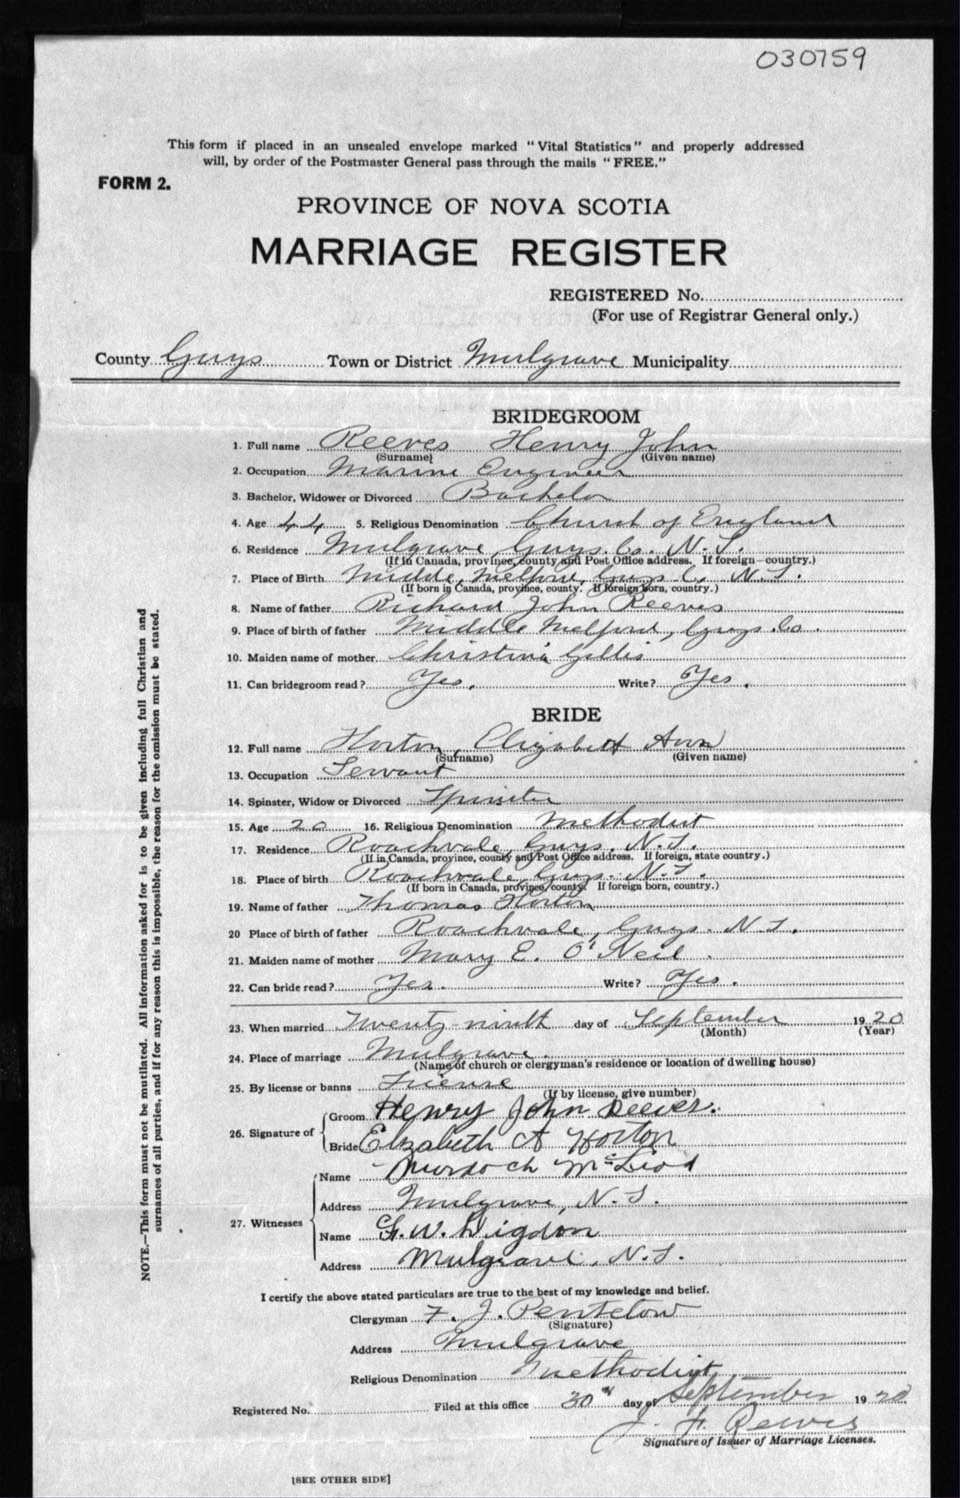 030759
This form if placed in an unsealed envelope marked "Vital Statistics" and properly addressed
will, by order of the Postmaster General pass through the mails "FREE."
FORM 2.
PROVINCE OF NOVA SCOTIA
MARRIAGE REGISTER
REGISTERED No.
(For use of Registrar General only.)
County Guys Town or District Mulgrave Municipality
BRIDEGROOM
1. Full name Reeves Henry John
(Surname) (Given name)
2. Occupation Marine Engineer
3. Bachelor, Widower or Divorced Bachelor
4. Age 44 5. Religious Denomination Church of England
6. Residence Mulgrave, Guys. Co. N.S.
(If in Canada, province, county and Post Office address. If foreign—country.)
7. Place of Birth Middle Melford, Guys Co. N.S.
(If born in Canada, province, county. If foreign born, country.)
8. Name of father Richard John Reeves
9. Place of birth of father Middle Melford, Guys Co.
10. Maiden name of mother Christina Gillis
11. Can bridegroom read? Yes. Write? Yes.
BRIDE
12. Full name Horton, Elizabeth Ann
(Surname) (Given name)
13. Occupation Servant
14. Spinster, Widow or Divorced Spinster
15. Age 20 16. Religious Denomination Methodist
17. Residence Roachvale, Guys. N.S.
(If in Canada, province, county and Post Office address. If foreign, state country.)
18. Place of birth Roachvale, Guys. N.S.
(If born in Canada, province/county. If foreign born, country.)
19. Name of father Thomas Horton
20 Place of birth of father Roachvale, Guys. N.S.
21. Maiden name of mother Mary E. O'Neil
22. Can bride read? Yes. Write? Yes.
23. When married Twenty-ninth day of September 1920
(Month) (Year)
24. Place of marriage Mulgrave.
(Name of church or clergyman's residence or location of dwelling house)
25. By license or banns License
(If by license, give number)
26. Signature of
Groom Henry John Reeves.
Bride Elzabeth A Horton
27. Witnesses
Name Murdoch McLeod
Address Mulgrave, N.S.
Name G. W. Digdon
Address Mulgrave, N.S.
I certify the above stated particulars are true to the best of my knowledge and belief.
Clergyman F. J. Pentelow
(Signature)
Address Mulgrave
Religious Denomination Methodist
Registered No. Filed at this office 30th day of September 1920
J. F. Reeves
Signature of Issuer of Marriage Licenses.
[SEE OTHER SIDE]
NOTE.—This form must not be mutilated. All information asked for is to be given including full Christian and
surnames of all parties, and if for any reason this is impossible, the reason for the omission must be stated.